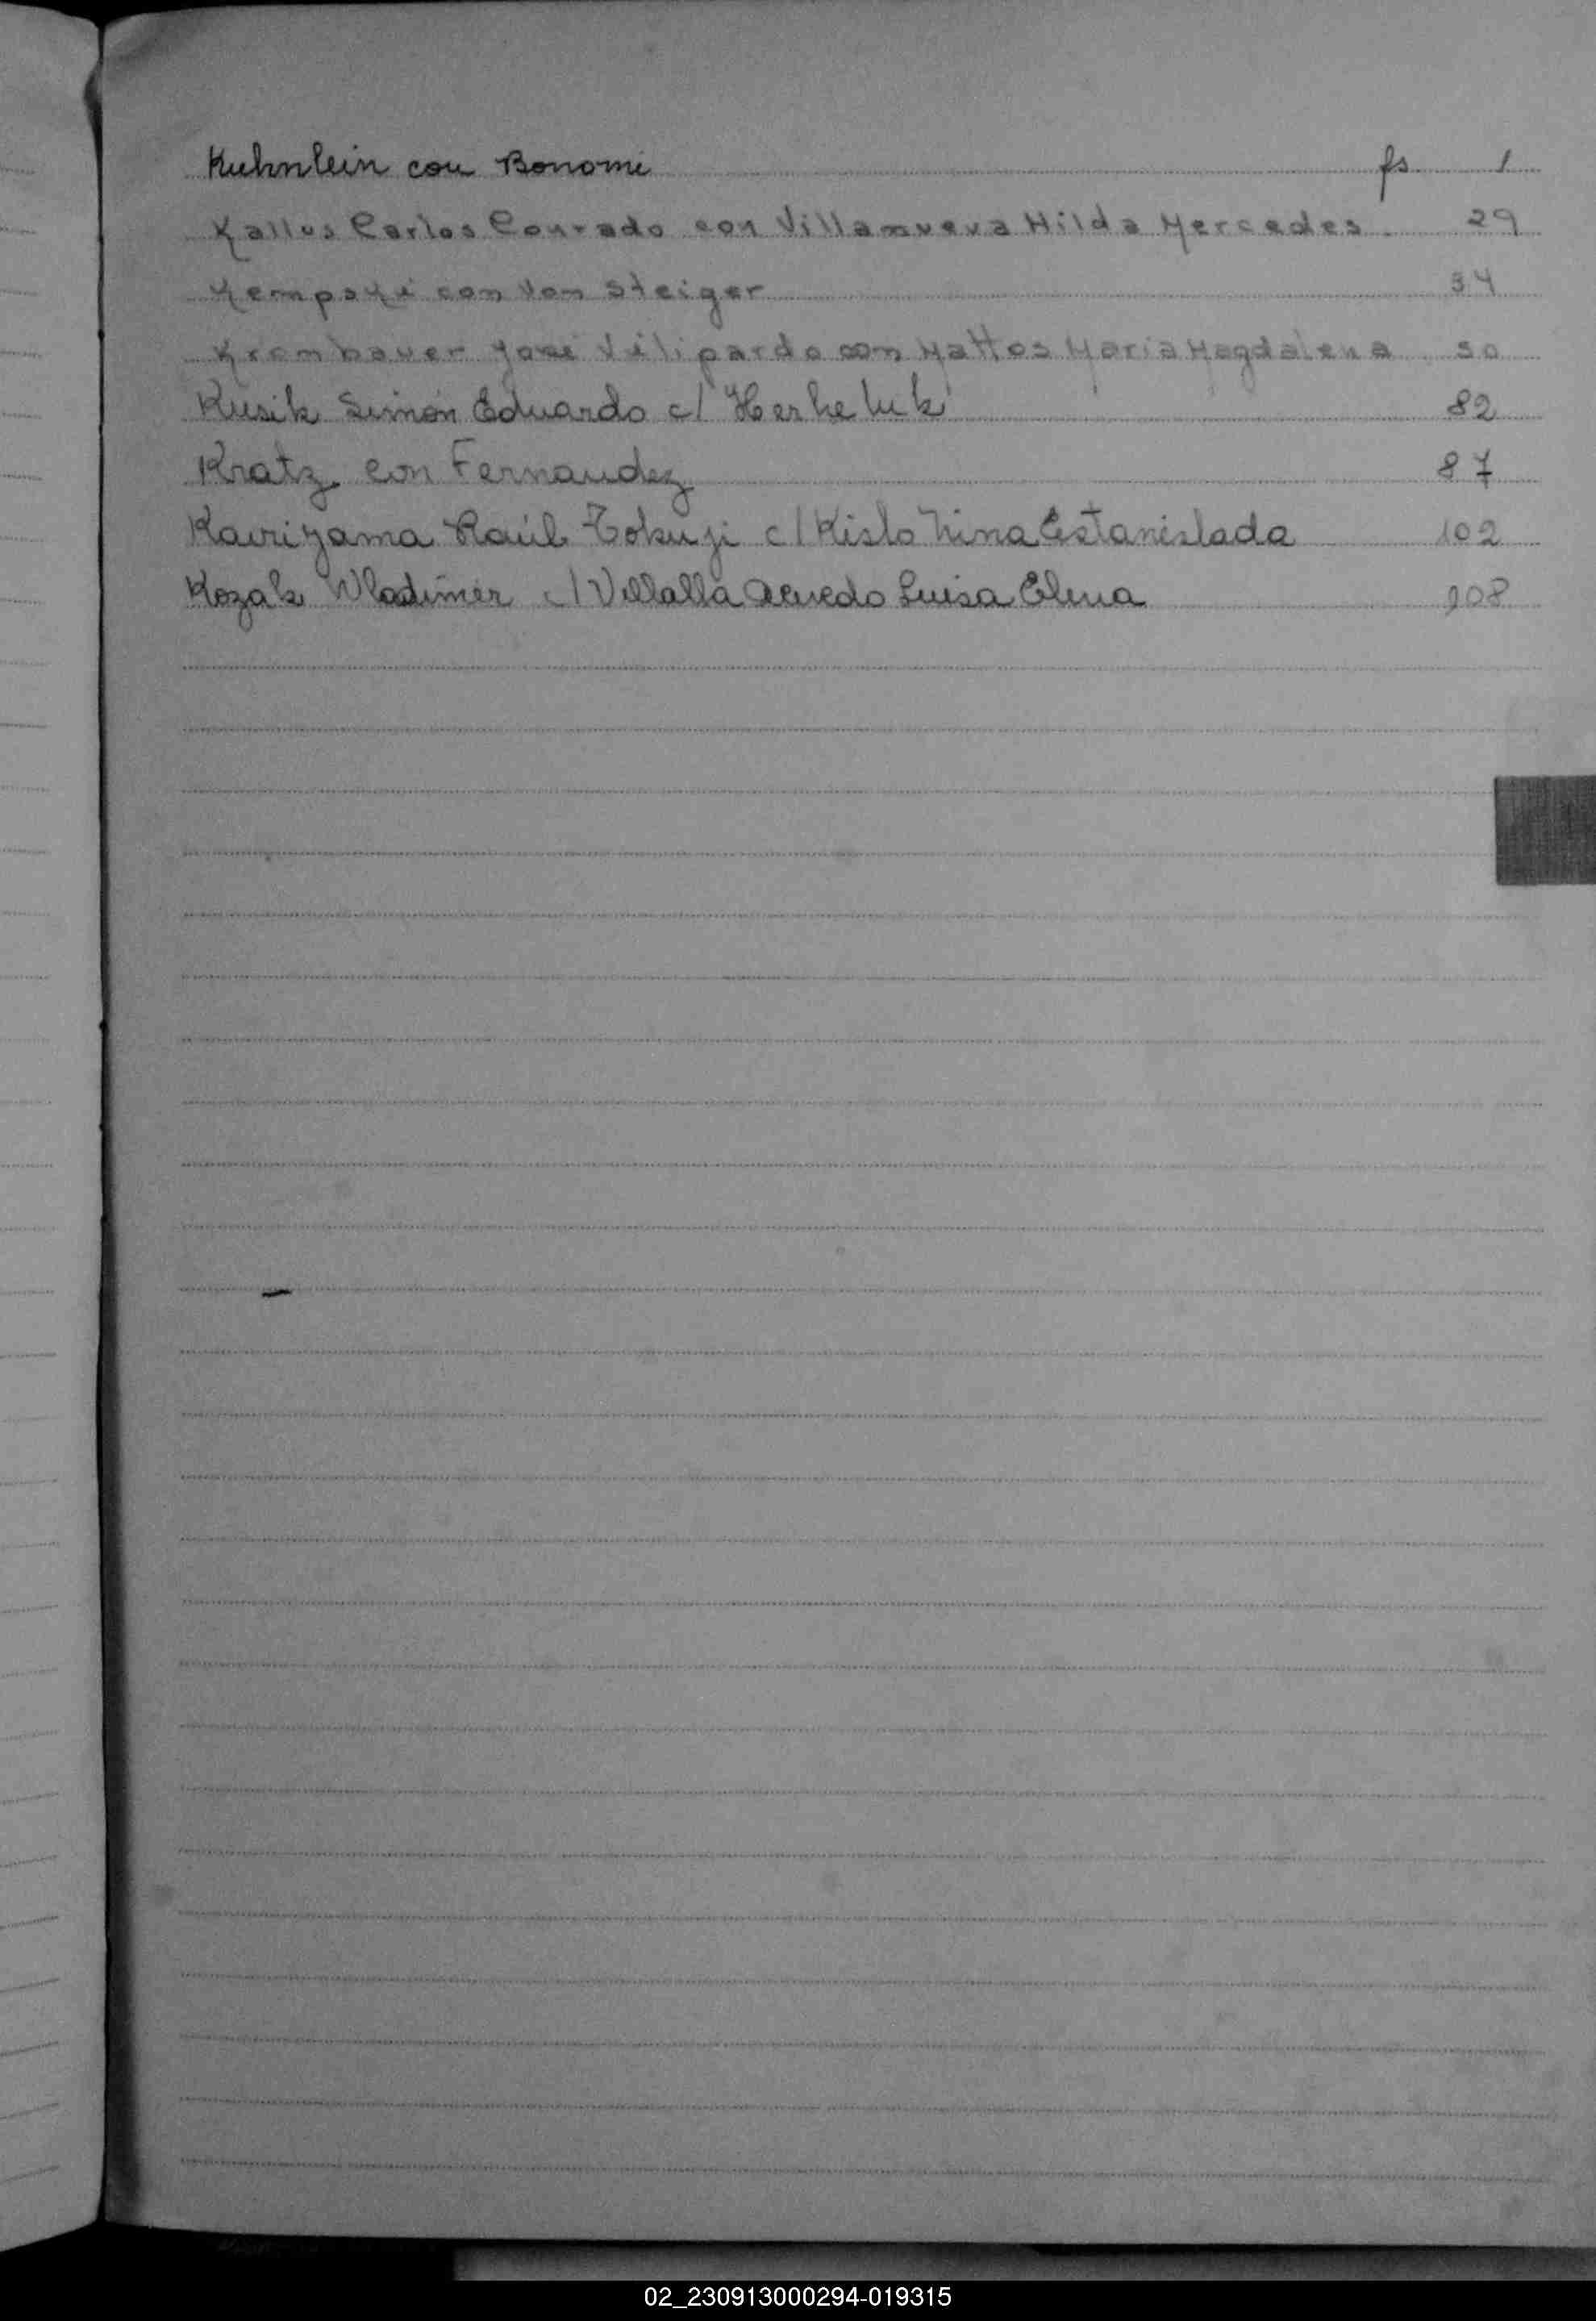 Kuhnlein con Bonomi fs 1
Kallus Carlos Conrado con Villanueva Hilda Mercedes. 29
Kempski con Von Steiger 34
Krombauer José Vilipardo con Mattos Maria Magdalena 50
Kusik Simón Eduardo c/ Herheluk 82
Kratz con Fernandez 87
Kairiyama Raúl Tokuji c/ Kislo Nina Estanislada 102
Kozak Wladimer c/ Villalla Acevedo Luisa Elena 108
02_230913000294-019315